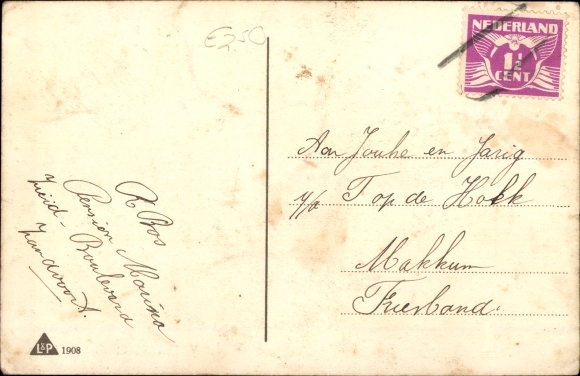 €2.50
NEDERLAND
1½
CENT
Aan Jouke en Jarig
p/a Top de Hoek
Makkum
Friesland.
R. Bos
Pension Marina
Zuid-Boulevard
Zandvoort.
L&P 1908